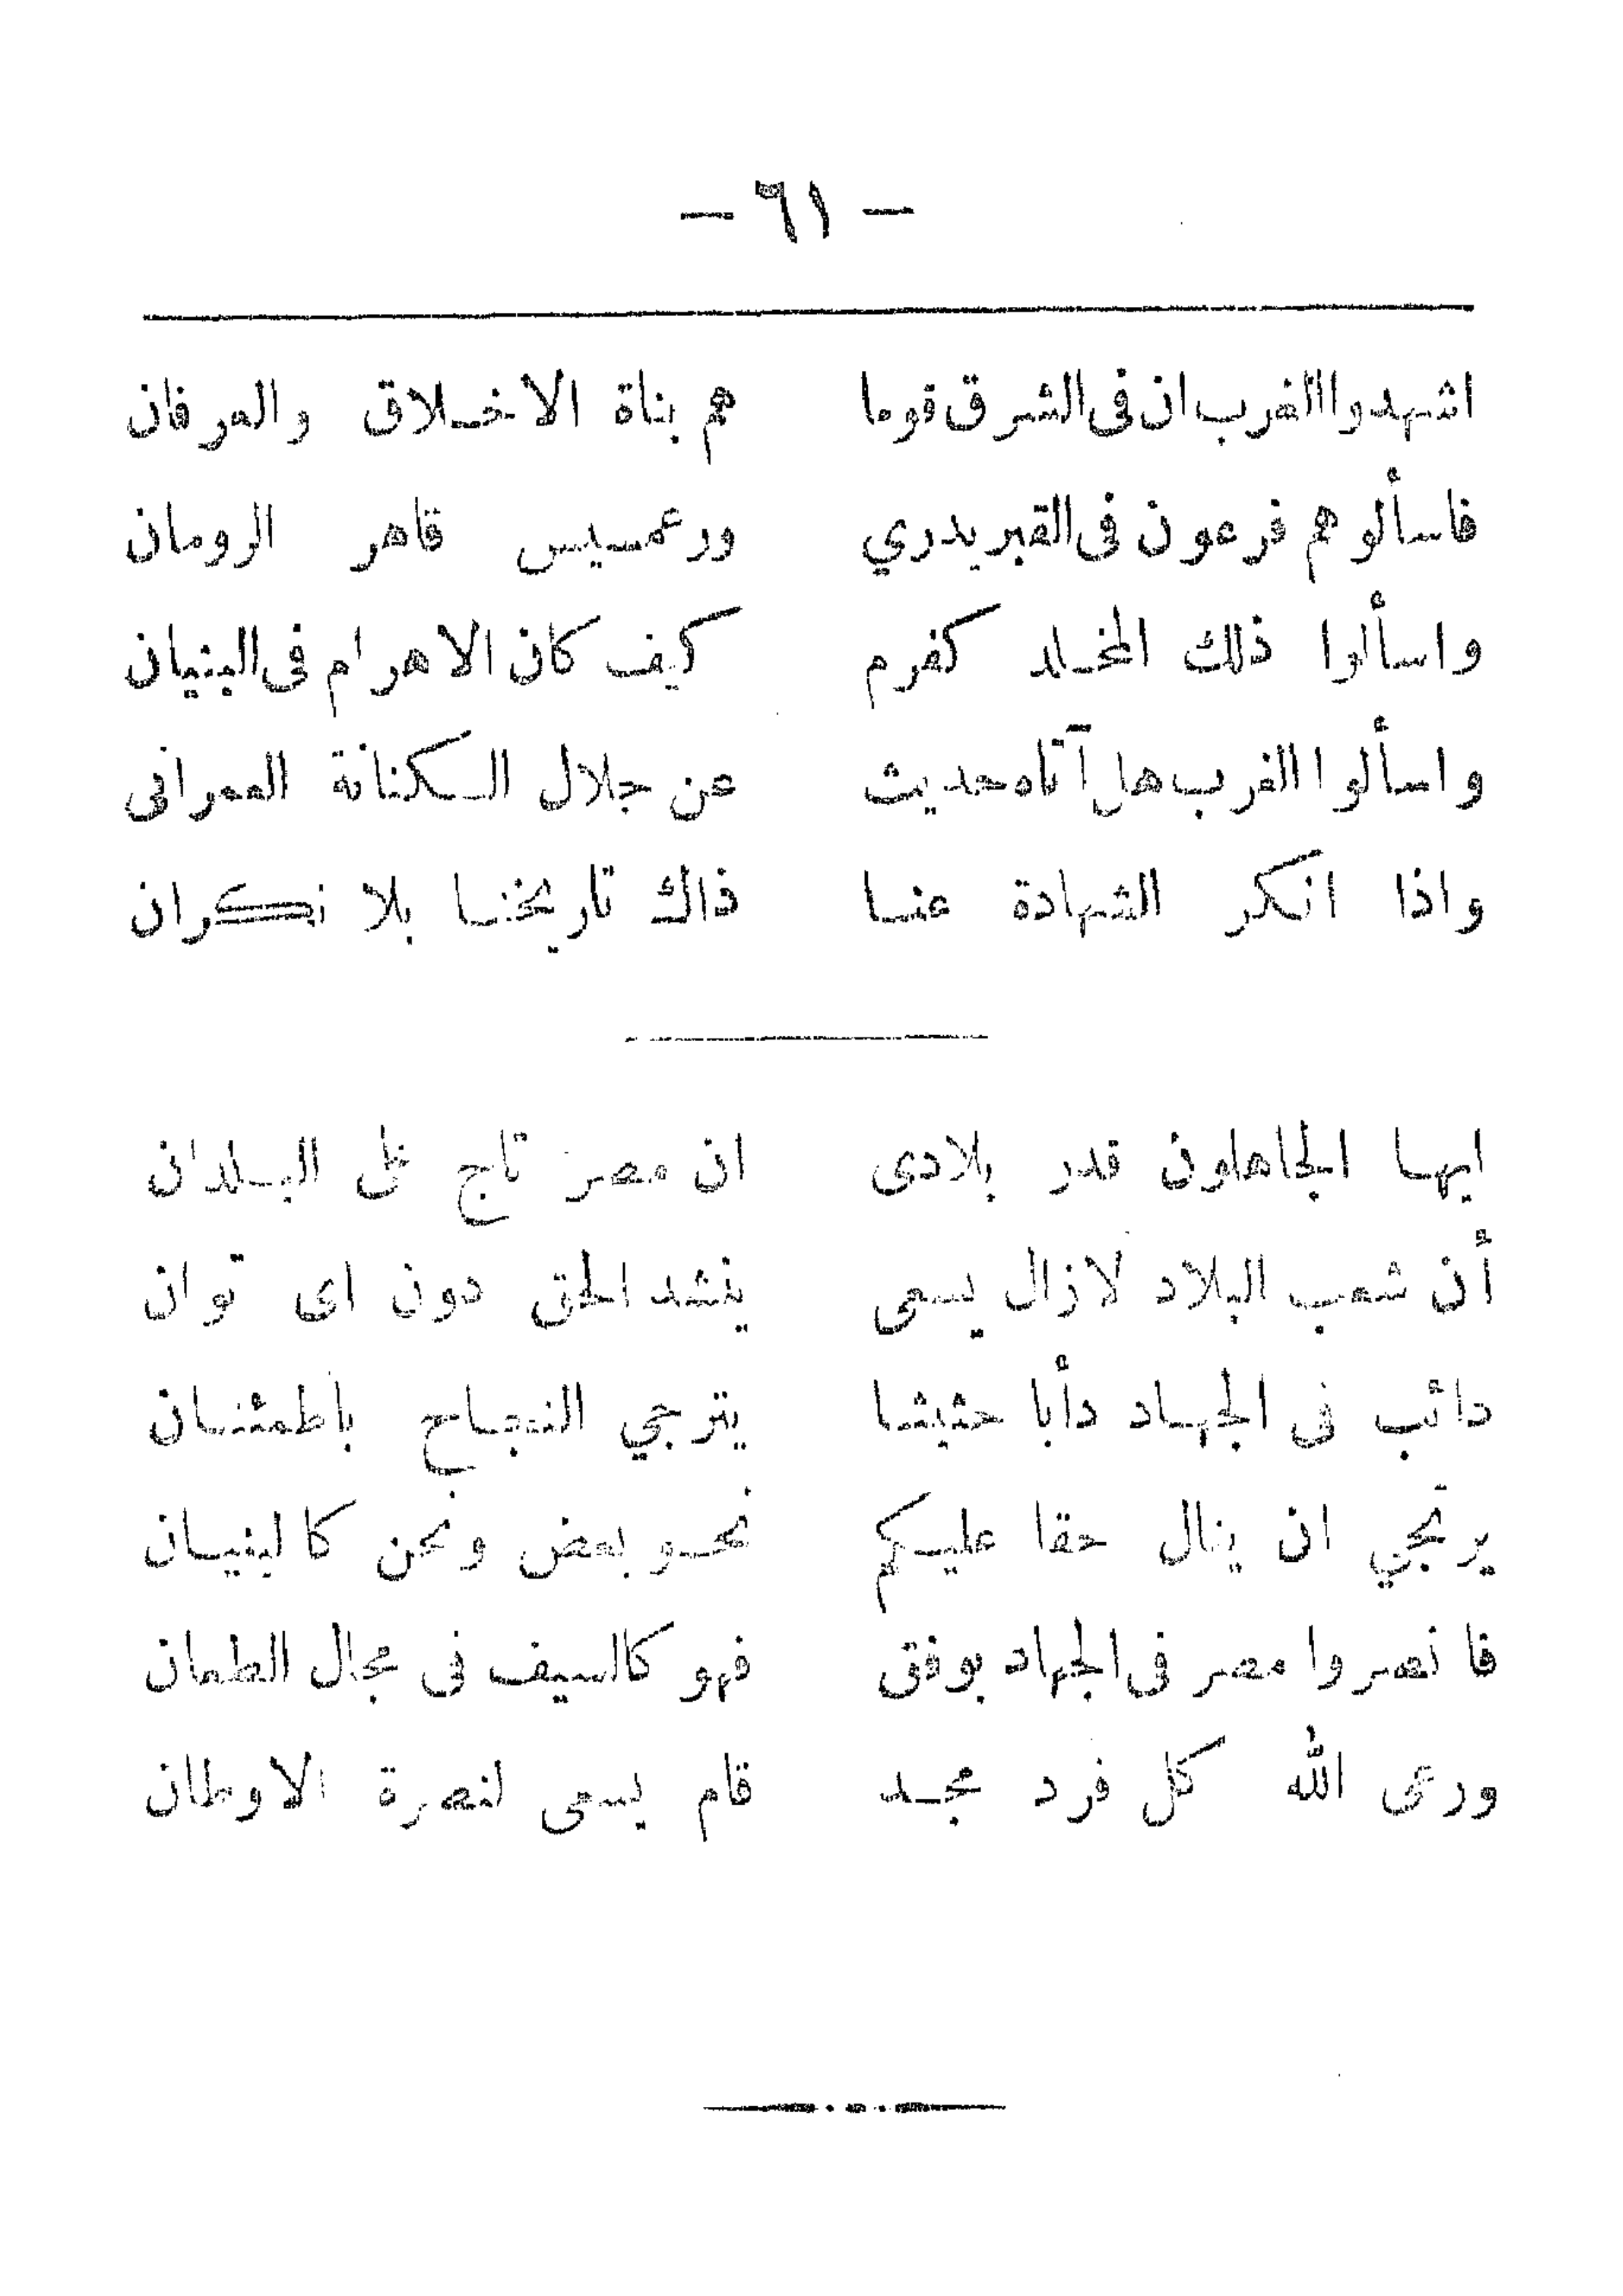 — ٦١ —
اشهدوا الغرب ان فى الشرق قوما هم بناة الاخلاق والعرفان
فاسألوهم فرعون فى القبر يدري ورعمسيس قاهر الرومان
واسألوا ذلك المخلد كفرم كيف كان الاهرام فى البنيان
واسألوا الغرب هل آتاه حديث عن جلال الكنانة العمرانى
واذا انكر الشهادة عنا ذاك تاريخنا بلا نكران
ايها الجاهلون قدر بلادى ان مصر تاج البلدان
أن شعب البلاد لازال يسعى ينشد الحق دون اى توان
دائب فى الجهاد دأبا حثيثا يترجي النجاح باطمئنان
يرتجي ان ينال حقا عليكم نحو بعض ونحن كالبنيان
فانصروا مصر فى الجهاد بوفق فهو كالسيف فى مجال الطعان
ورعى الله كل فرد مجد قام يسعى لنصرة الاوطان